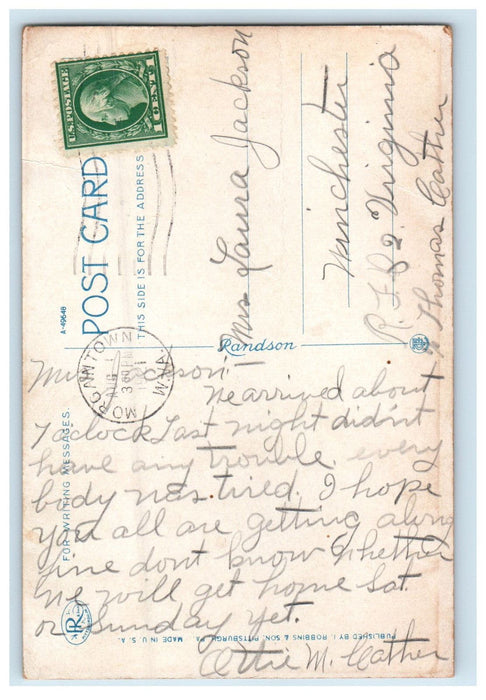 U.S. POSTAGE
1 CENT 1
POST CARD
THIS SIDE IS FOR THE ADDRESS
A-49648
Mrs Laura Jackson
Winchester
R.F.D. 2. Virginia
Thomas Cather
Randson
MORGANTOWN
W.VA.
AUG
3 30 PM
FOR WRITING MESSAGES.
Mrs Jackson:
We arrived about
7 oclock Last night didn't
have any trouble every
body was tired. I hope
you all are getting along
fine dont know whether
we will get home Sat.
or Sunday yet.
Ottie M. Cather
PUBLISHED BY I. ROBBINS & SON, PITTSBURGH, PA.
MADE IN U. S. A.